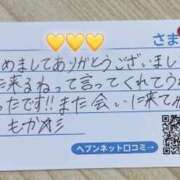 さま
めましてありがとうございまし
に来るねって言ってくれてう
ったです!!また会いに来てね
もか
ヘブンネット口コミ→